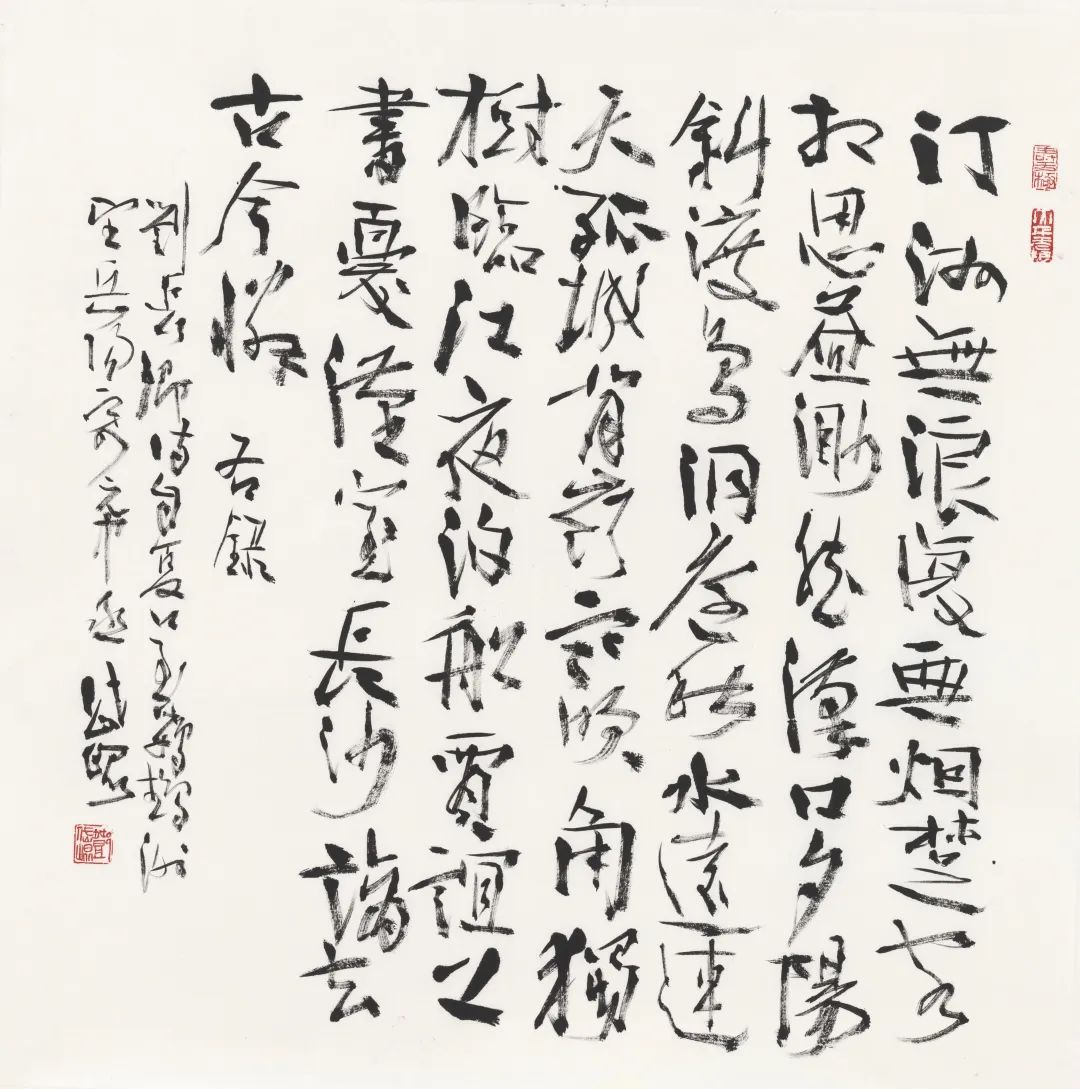 汀洲無浪復無烟楚客
相思益渺然漢口夕陽
斜渡鳥洞庭秋水遠連
天孤城背嶺寒吹角獨
樹臨江夜泊船賈誼上
書憂漢室長沙謫去
古今憐 右錄
劉長卿詩自夏口至鸚鵡洲
望岳陽寄元中丞